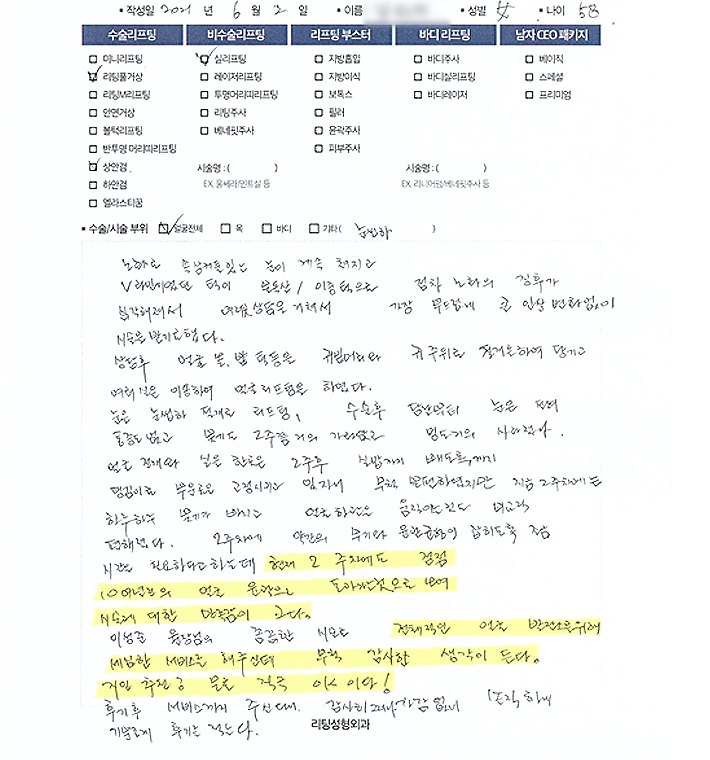 • 작성일 2021 년 6 월 2 일 • 이름 • 성별 女 • 나이 58
수술리프팅 비수술리프팅 리프팅 부스터 바디 리프팅 남자 CEO 패키지
미니리프팅 실리프팅 지방흡입 바디주사 베이직
리팅풀거상 레이저리프팅 지방이식 바디실리프팅 스페셜
리팅M리프팅 투명머리띠리프팅 보톡스 바디레이저 프리미엄
안면거상 리팅주사 필러
볼턱리프팅 베네핏주사 윤곽주사
반투명 머리띠리프팅 피부주사
상안검 시술명 : ( ) 시술명 : ( )
하안검 EX. 울쎄라/인트살 등 EX. 리니어펌/베네핏주사 등
엘라스티꿈
• 수술/시술 부위 얼굴전체 목 바디 기타( 눈썹하 )
노화로 속상커플있는 눈이 계속 처지고
V라인이었던 턱이 / 이중턱으로 점차 노화의 징후가
심각해져서 상담을 거쳐서 가장 부드럽게 큰 인상 변화없이
시술을 받기로 했다.
상담후 얼굴 볼, 턱등은 귀밑머리와 귀 주위로 절개를하여 당기고
실을 이용하여 얼굴 리프팅을 하였다.
눈은 눈썹하 절개로 리프팅, 수술후 눈은 전혀
통증도 없고 붓기도 2주쯤 거의 가라앉고 멍도 거의 사라졌다.
얼굴 전체와 2주후 실밥까지
부분을 고정시키고 있자서 무척 불편하였지만 지금 2주차에는
하루하루 붓기가 빠지고 얼굴 하관은
편해졌다. 2주차에 약간의 붓기와 윤곽 잡히도록 좀
시간은 필요하다고하는데 현재 2 주차에도 점점
10여년전의 얼굴 윤곽으로 돌아가는것으로 보여
시술에 대한 만족감이 크다.
이성준 원장님의 꼼꼼한 시술과 전체적인 얼굴 발란스를위해
세심한 서비스를 해주신데 무척 감사한 생각이 든다.
지인 추천 할 곳은 적극 이다!
후기후 서비스까지 주신다니. 감사하고 가감 없이 솔직하게
기분좋게 후기를 적는다.
리팅성형외과